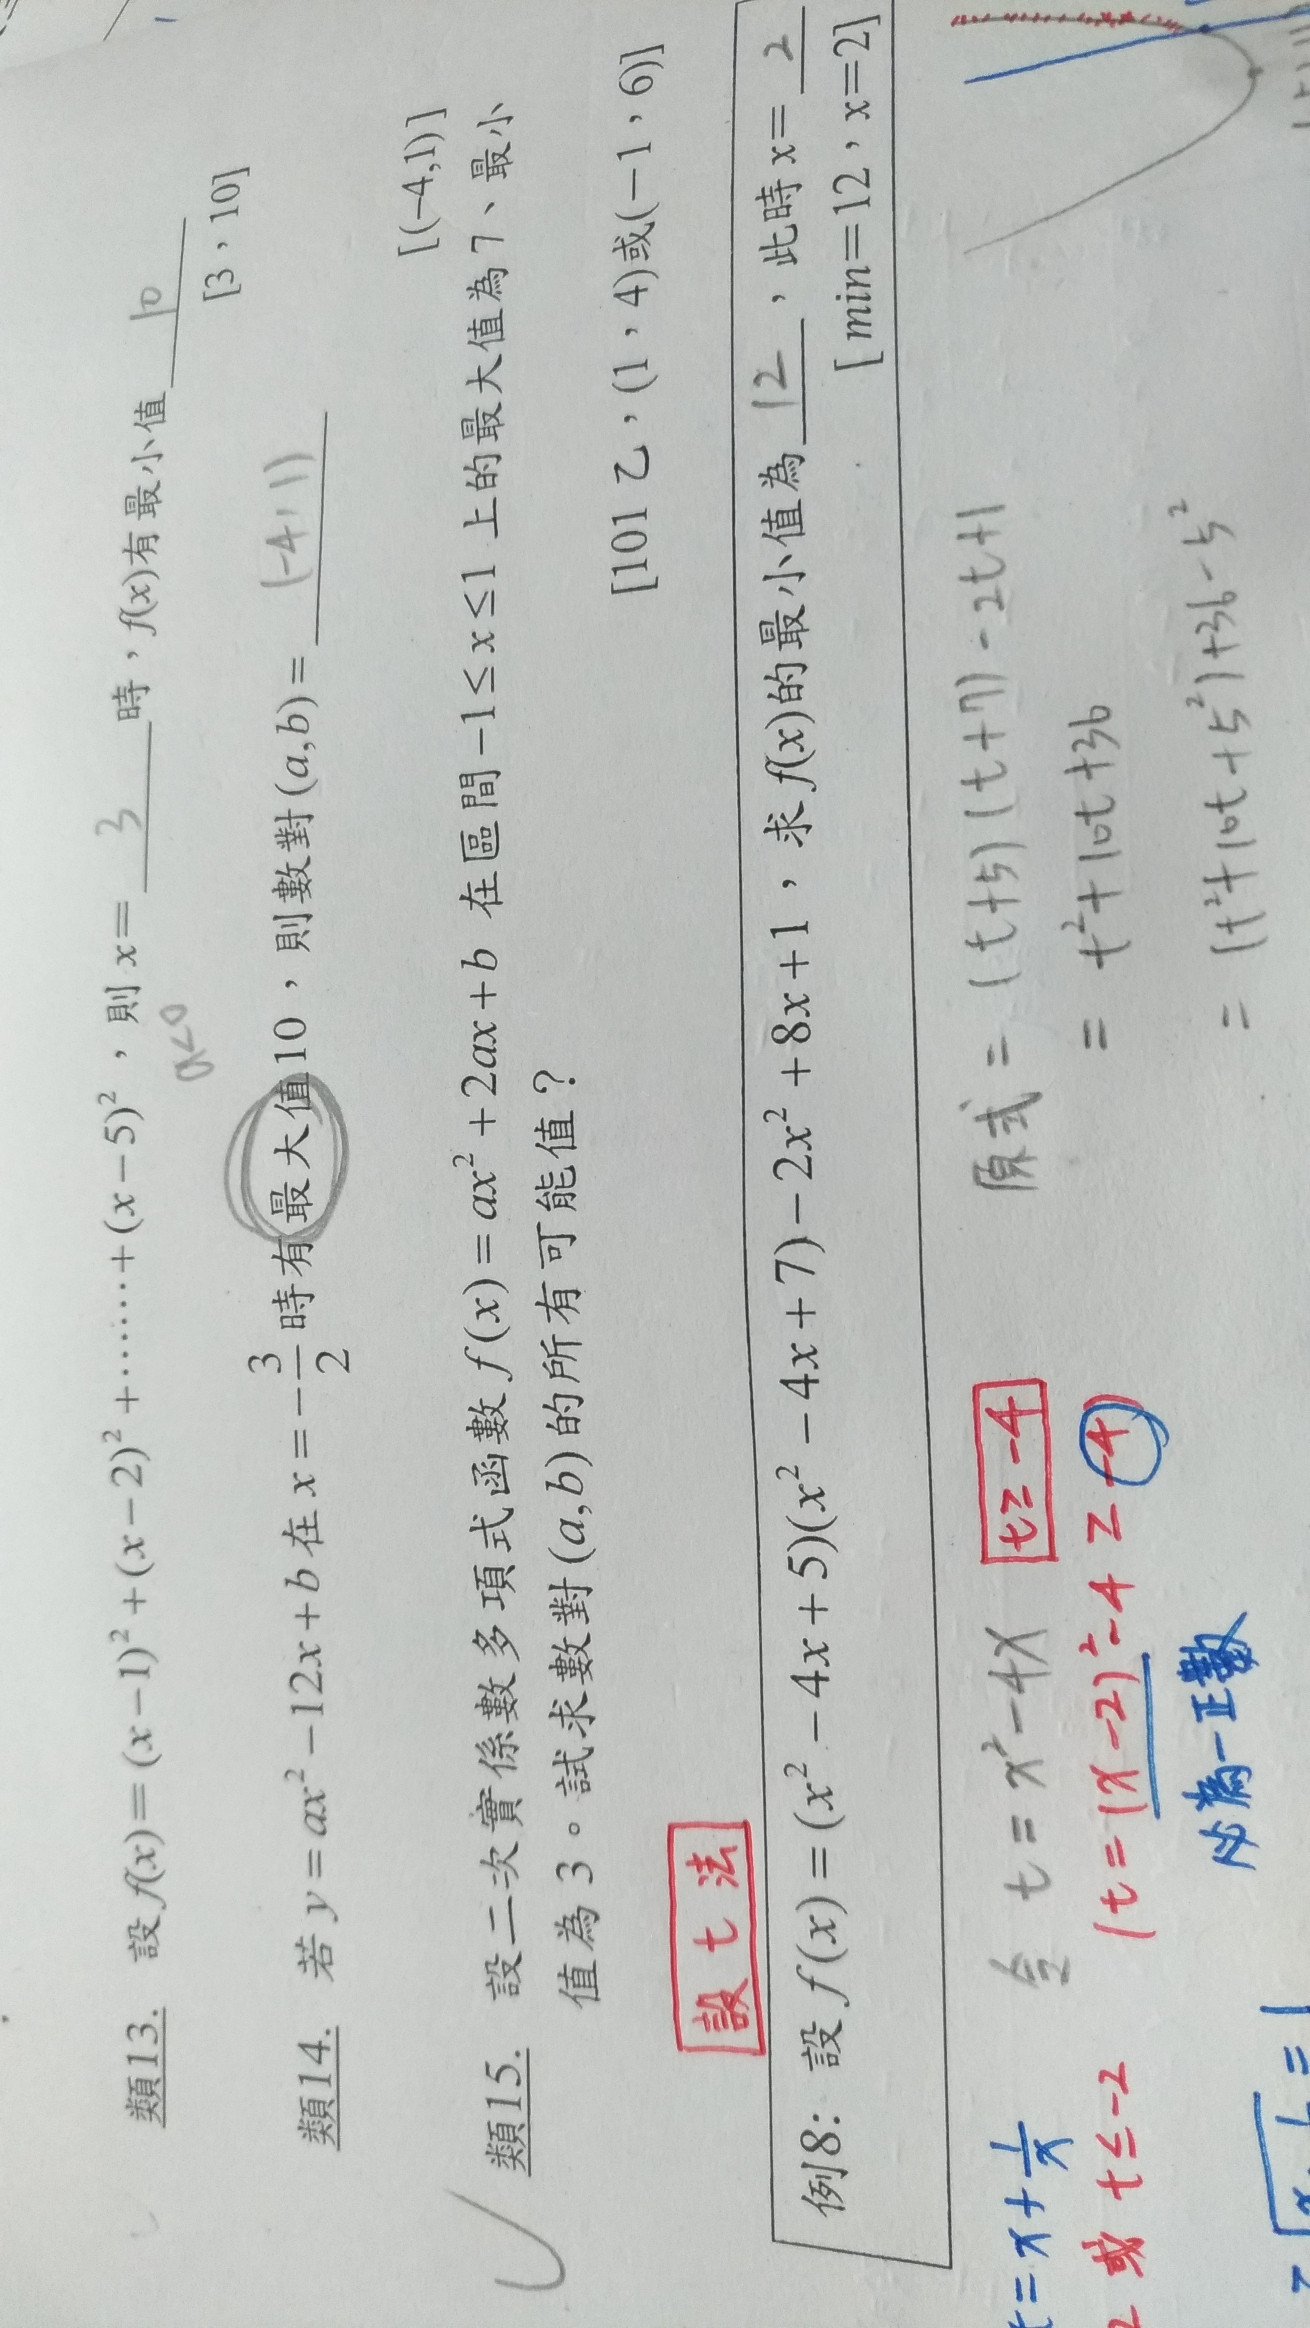 類13. 設 f(x)=(x-1)²+(x-2)²+……+(x-5)²，則 x= 3 時，f(x)有最小值 10
[3，10]
a<0
類14. 若 y=ax²-12x+b 在 x=-3/2 時有最大值10，則數對(a,b)= (-4,1)
[(-4,1)]
類15. 設二次實係數多項式函數 f(x)=ax²+2ax+b 在區間 -1≤x≤1 上的最大值為 7、最小
值為 3。試求數對(a,b)的所有可能值？
[101 乙，(1，4)或(-1，6)]
設 t 法
例8: 設 f(x)=(x²-4x+5)(x²-4x+7)-2x²+8x+1，求 f(x)的最小值為 12，此時 x= 2
[min=12，x=2]
令 t=x²-4x t≥-4
(t=(x-2)²-4≥-4)
必為一正數
原式=(t+5)(t+7)-2t+1
=t²+10t+36
=(t²+10t+5²)+36-5²
t=x+1/x
2 或 t≤-2